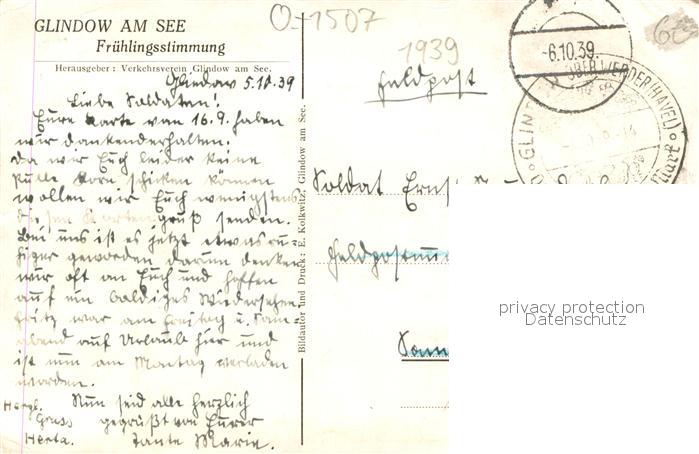 GLINDOW AM SEE
Frühlingsstimmung
Herausgeber: Verkehrsverein Glindow am See.
Glindow 5.10.39
Liebe Soldaten!
Eure Karte vom 16.9. haben
wir dankend erhalten.
Da wir Euch leider keine
Pulle Korn schicken können
wollen wir Euch wenigstens
diesen Kartengruß senden.
Bei uns ist es jetzt etwas ru-
higer geworden darum denken
wir oft an Euch und hoffen
auf ein baldiges Wiedersehen.
Fritz war am Freitag u. Sonn-
abend auf Urlaub hier und
ist nun am Montag verladen
worden.
Nun seid alle herzlich
gegrüßt von Eurer
Tante Marie.
Herzl.
Gruss
Herta.
Bildautor und Druck: E. Kolkwitz, Glindow am See.
O-1507
1939
Feldpost
-6.10.39.
GLIND
ÜBER WERDER (HAVEL)
Soldat Ernst
Feldpostnu
privacy protection
Datenschutz